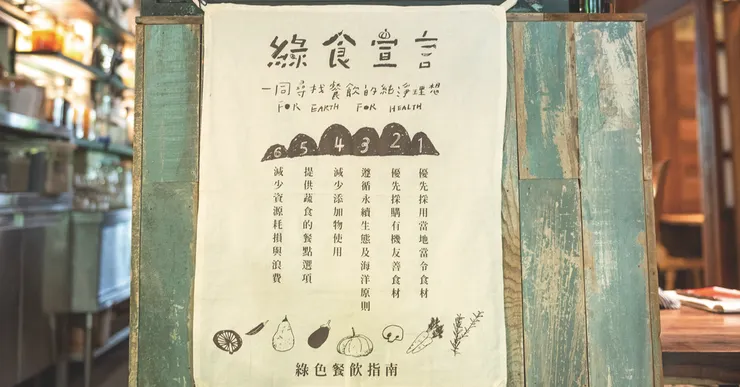 綠食宣言
一同尋找餐飲的純淨理想
FOR EARTH FOR HEALTH
1 優先採用當地當令食材
2 優先採購有機友善食材
3 遵循永續生態及海洋原則
4 減少添加物使用
5 提供蔬食的餐點選項
6 減少資源耗損與浪費
綠色餐飲指南